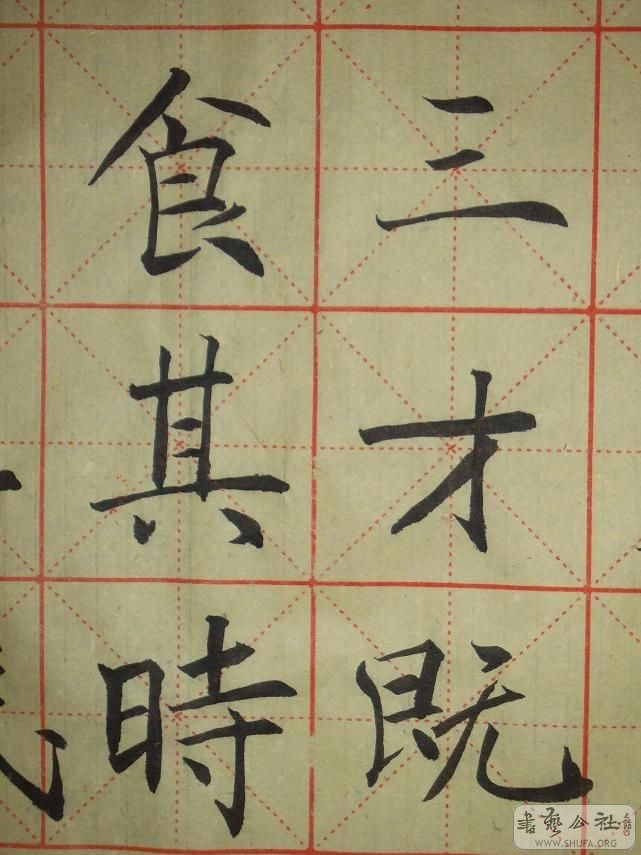 三才既
食其時
書藝公社
WWW.SHUFA.ORG